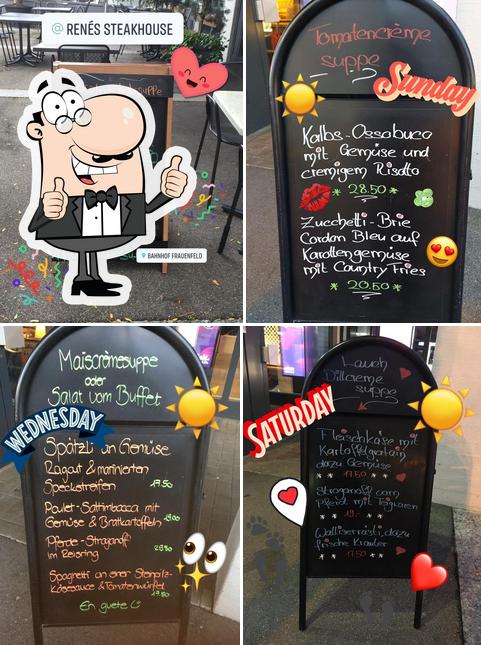 @ RENÉS STEAKHOUSE
BAHNHOF FRAUENFELD
Tomatencrème
suppe
Sunday
Kalbs-Ossobuco
mit Gemüse und
cremigem Risotto
* 28.50 *
Zucchetti-Brie
Cordon Bleu auf
Karottengemüse
mit Country Fries
* 20.50 *
Maiscrèmesuppe
oder
Salat vom Buffet
WEDNESDAY
Spätzli an Gemüse
Ragout & marinierten
Speckstreifen 17.50
Poulet-Saltimbocca mit
Gemüse & Bratkartoffeln
Pferde-Stroganoff
im Reisring
Spaghetti an einer Steinpilz-
Käsesauce & Tomatenwürfel
En guete
Lauch
Dillcreme
suppe
SATURDAY
Fleischkäse mit
Kartoffelgratin
dazu Gemüse
17.50
Stroganoff vom
Pferd mit Teigwaren
19.-
Walliserrösti, dazu
frische Kräuter
17.50